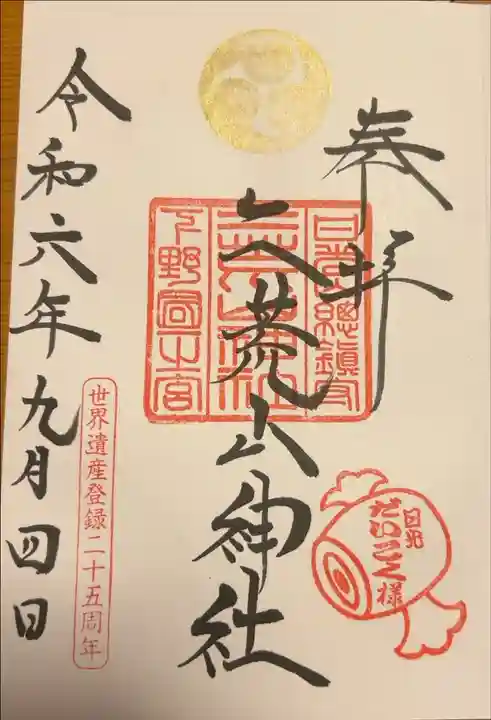 奉拝
日光総鎮守
二荒山神社
下野国一之宮
二荒山神社
日光
だいこく様
世界遺産登録二十五周年
令和六年九月四日